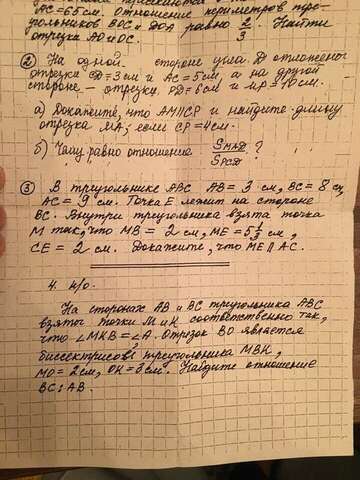 AC=65см. Отношение периметров тре-
угольников BOC и DOA равно 2/3. Найти
отрезки AO и OC.
② На одной стороне угла D отложены
отрезки CD=3см и AC=5см, а на другой
стороне – отрезки PD=6см и MP=10см.
а) Докажите, что AM||CP и найдите длину
отрезка MA, если CP=4см.
б) Чему равно отношение S_MAD/S_PCD?
③ В треугольнике ABC AB=3 см, BC=8 см,
AC=9 см. Точка E лежит на стороне
BC. Внутри треугольника взята точка
M так, что MB=2см, ME=5 1/3 см,
CE=2 см. Докажите, что ME||AC.
4. н/о.
На сторонах AB и BC треугольника ABC
взяты точки M и H соответственно так,
что ∠MHB=∠A. Отрезок BO является
биссектрисой треугольника MBH,
MO=2см, OH=3см. Найдите отношение
BC:AB.